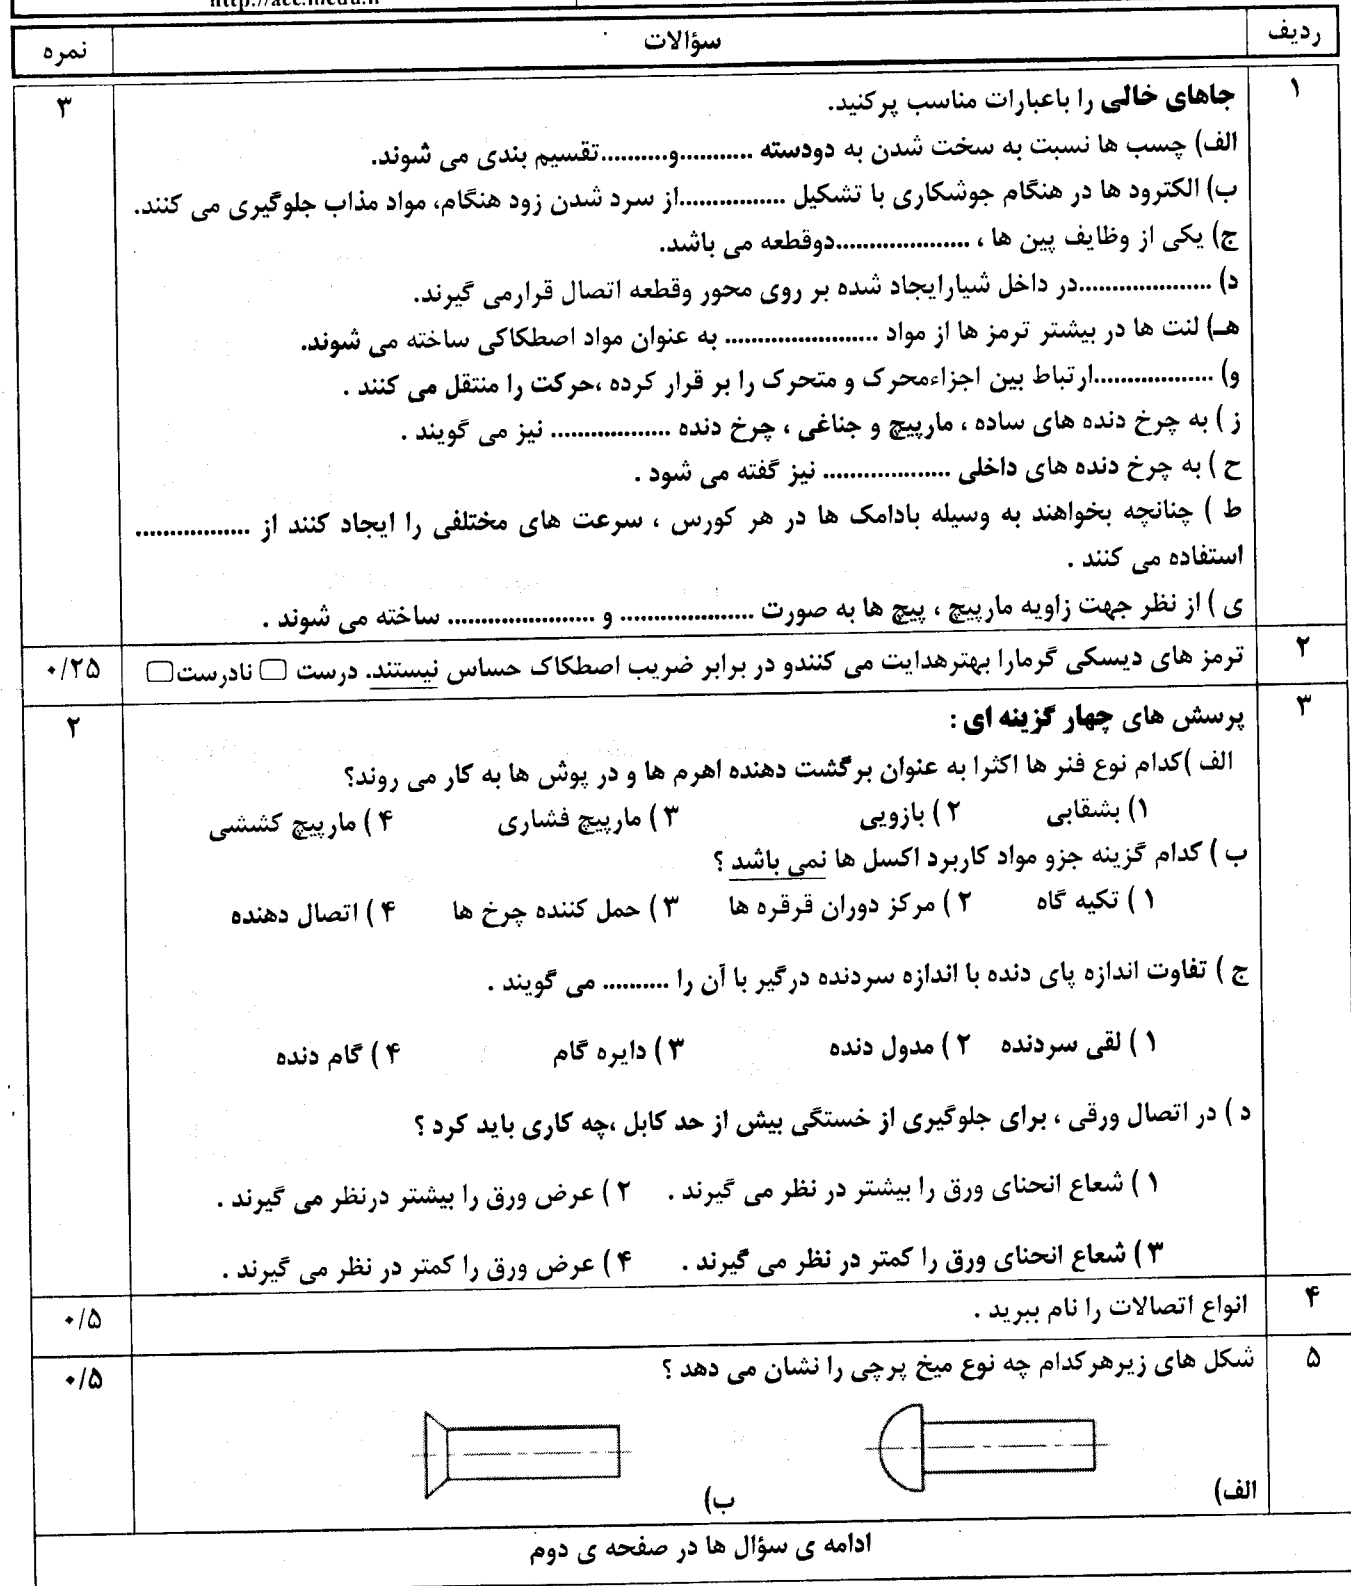 ردیف سؤالات نمره
۱ جاهای خالی را باعبارات مناسب پرکنید. ۳
الف) چسب ها نسبت به سخت شدن به دودسته ...........و..........تقسیم بندی می شوند.
ب) الکترود ها در هنگام جوشکاری با تشکیل ................از سرد شدن زود هنگام، مواد مذاب جلوگیری می کنند.
ج) یکی از وظایف پین ها ، ....................دوقطعه می باشد.
د) ....................در داخل شیارایجاد شده بر روی محور وقطعه اتصال قرارمی گیرند.
هـ) لنت ها در بیشتر ترمز ها از مواد ....................... به عنوان مواد اصطکاکی ساخته می شوند.
و) ..................ارتباط بین اجزاءمحرک و متحرک را بر قرار کرده ،حرکت را منتقل می کنند .
ز ) به چرخ دنده های ساده ، مارپیچ و جناغی ، چرخ دنده .................. نیز می گویند .
ح ) به چرخ دنده های داخلی ................... نیز گفته می شود .
ط ) چنانچه بخواهند به وسیله بادامک ها در هر کورس ، سرعت های مختلفی را ایجاد کنند از .................
استفاده می کنند .
ی ) از نظر جهت زاویه مارپیچ ، پیچ ها به صورت .................... و ...................... ساخته می شوند .
۲ ترمز های دیسکی گرمارا بهترهدایت می کنندو در برابر ضریب اصطکاک حساس نیستند. درست □ نادرست□ ۰/۲۵
۳ پرسش های چهار گزینه ای : ۲
الف )کدام نوع فنر ها اکثرا به عنوان برگشت دهنده اهرم ها و در پوش ها به کار می روند؟
۱) بشقابی ۲ ) بازویی ۳ ) مارپیچ فشاری ۴ ) مارپیچ کششی
ب ) کدام گزینه جزو مواد کاربرد اکسل ها نمی باشد ؟
۱ ) تکیه گاه ۲ ) مرکز دوران قرقره ها ۳ ) حمل کننده چرخ ها ۴ ) اتصال دهنده
ج ) تفاوت اندازه پای دنده با اندازه سردنده درگیر با آن را .......... می گویند .
۱ ) لقی سردنده ۲ ) مدول دنده ۳ ) دایره گام ۴ ) گام دنده
د ) در اتصال ورقی ، برای جلوگیری از خستگی بیش از حد کابل ،چه کاری باید کرد ؟
۱ ) شعاع انحنای ورق را بیشتر در نظر می گیرند . ۲ ) عرض ورق را بیشتر درنظر می گیرند .
۳ ) شعاع انحنای ورق را کمتر در نظر می گیرند . ۴ ) عرض ورق را کمتر در نظر می گیرند .
۴ انواع اتصالات را نام ببرید . ۰/۵
۵ شکل های زیرهرکدام چه نوع میخ پرچی را نشان می دهد ؟ ۰/۵
الف) ب)
ادامه ی سؤال ها در صفحه ی دوم